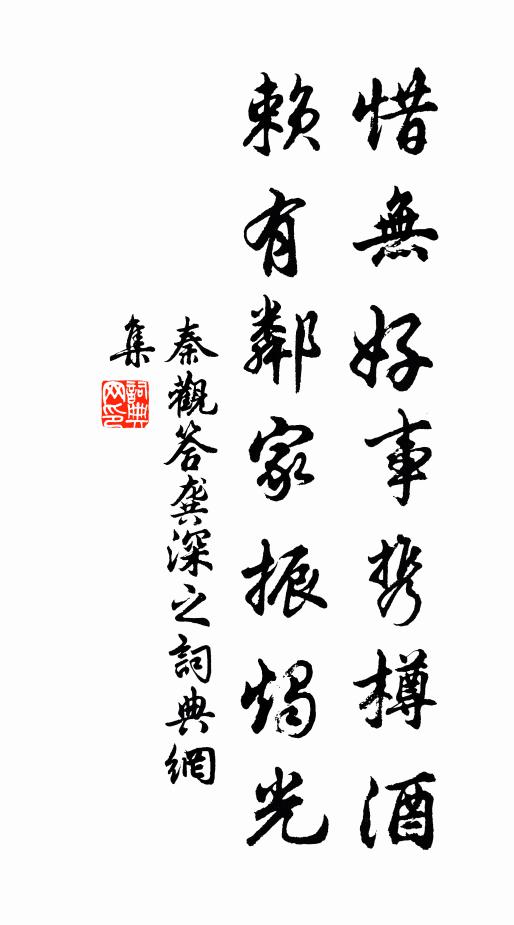 惜無好事携樽酒
賴有鄰家振燭光
秦觀答龔深之詞典網
集
詞典网印